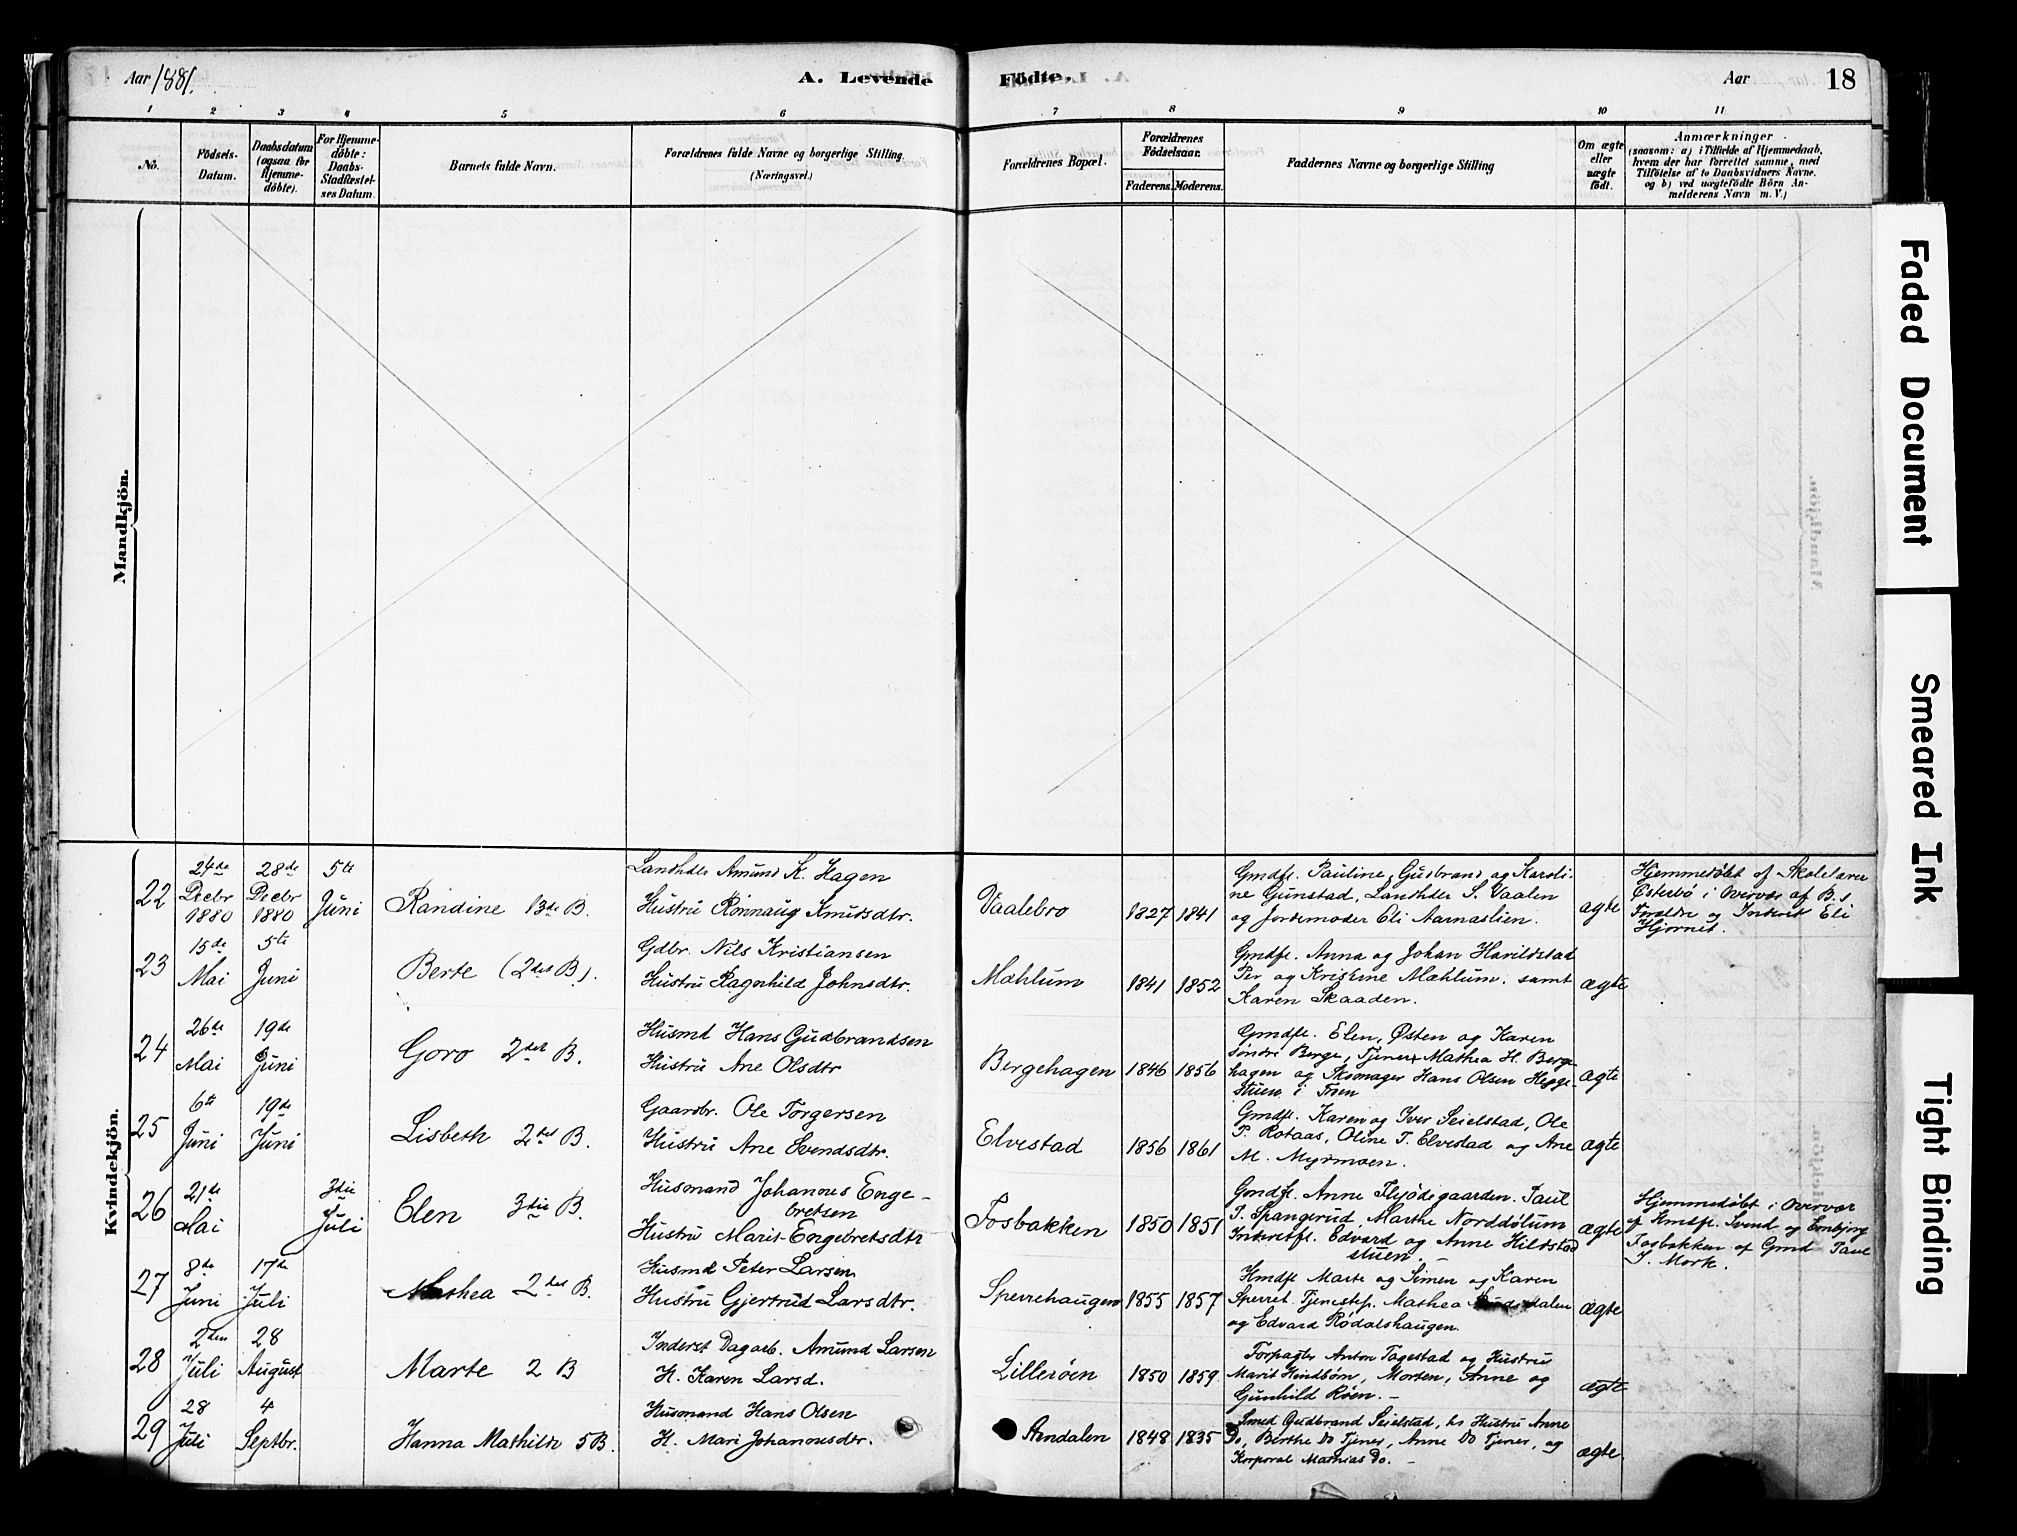 Aar 1881.
A. Levende
Födte.
Aar
18
1 2 3 4 5 6 7 8 9 10 11
No.
Födsels-
Datum.
Daabsdatum
(ogsaa for
Hjemme-
döbte).
For Hjemme-
döbte:
Daabs-
Stadfæstel-
ses Datum.
Barnets fulde Navn.
Forældrenes fulde Navne og borgerlige Stilling.
(Næringsvei.)
Forældrenes Bopæl.
Forældrenes
Födselsaar.
Faderens. Moderens.
Faddernes Navne og borgerlige Stilling
Om ægte
eller
uægte
födt.
Anmærkninger
(saasom: a) i Tilfælde af Hjemmedaab,
hvem der har forrettet samme, med
Tilföielse af to Daabsvidners Navne.
og b) ved uægtefödte Börn An-
melderens Navn m. V.)
Mandkjön.
Kvindekjön.
22
24de
Decbr
1880
28de
Decbr
1880
5te
Juni
Randine 13de B.
Landhdlr Amund K. Hagen
Hustru Rönnaug Knutsdtr.
Vaalebro
1827 1841
Gmdfl. Pauline, Gudbrand og Karoli-
ne Gunstad, Landhdlr S. Vaalen
og Jordemoder Eli Aarnæslien.
ægte
Hjemmedöbt af Skolelærer
Österbö i Overvær af B.s
Forældre og Inderst Eli
Hjornet.
23
15de
Mai
5te
Juni
Berte (2det B).
Gdbr. Nils Kristiansen
Hustru Ragnhild Johnsdtr.
Mæhlum
1841 1852
Gmdfl. Anna og Johan Harildstad
Per og Kristine Mæhlum. samt
Karen Skaaden.
ægte
24
26de
Mai
19de
Juni
Goro 2det B.
Husmd Hans Gudbrandsen
Hustru Ane Olsdtr
Bergehagen
1846 1856
Gmdfl. Elen, Østen og Karen
söndre Berge, Tjener Mathea H. Berge
hagen og Skomager Hans Olsen
stuen i
ægte
25
6te
Juni
19de
Juni
Lisbeth 2det B.
Gaardbr. Ole Torgersen
Hustru Ane Svendsdtr.
Elvestad
1856 1861
Gmdfl. Karen og Iver Seielstad, Ole
P. Rotaas, Oline T. Elvestad og Ane
M. Myrmoen.
ægte
26
21de
Mai
3die
Juli
Elen 3die B.
Husmand Johannes Enge-
bretsen
Hustru Marit Engebretsdtr
Fosbakken
1850 1851
Gmdfl. Anne Flyödegaarden. Paul
T. Spangerud, Marthe Norddölum
Inderstfl. Edvard og Anne Hildstad
stuen. –
ægte
Hjemmedöbt i Overvær
af Hmdfl. Svend og Embjörg
Fosbakken af Gmd Paul
J. Mork.
27
8de
Juni
17de
Juli
Mathea 2det B.
Husmd Peter Larsen
Hustru Gjertrud Larsdtr.
Sperrehaugen
1855 1857
Hmdfl Marte og Simen og Karen
Sperret. Tjenestep. Mathea
og Edvard Rodalshaugen.
ægte
28
2den
Juli
28
August
Marte 2 B
Inderst Dagarb. Amund Larsen
H. Karen Larsd.
Lilleröen
1850 1859
Forpagter Anton Fagestad og Hustru
Marit Hindbörn, Morten, Anne og
Gunhild Röen. –
ægte
29
28
Juli
4
Septbr.
Hanna Mathilde 5 B.
Husmand Hans Olsen
H. Mari Johannesdtr.
Arndalen
1848 1835
Smed Gudbrand Seielstad, hs Hustru Anne
Do, Berthe Do Tjener, Anne Do Tjener, og
Korporal Mathias Do. –
ægte.
Faded Document
Smeared Ink
Tight Binding